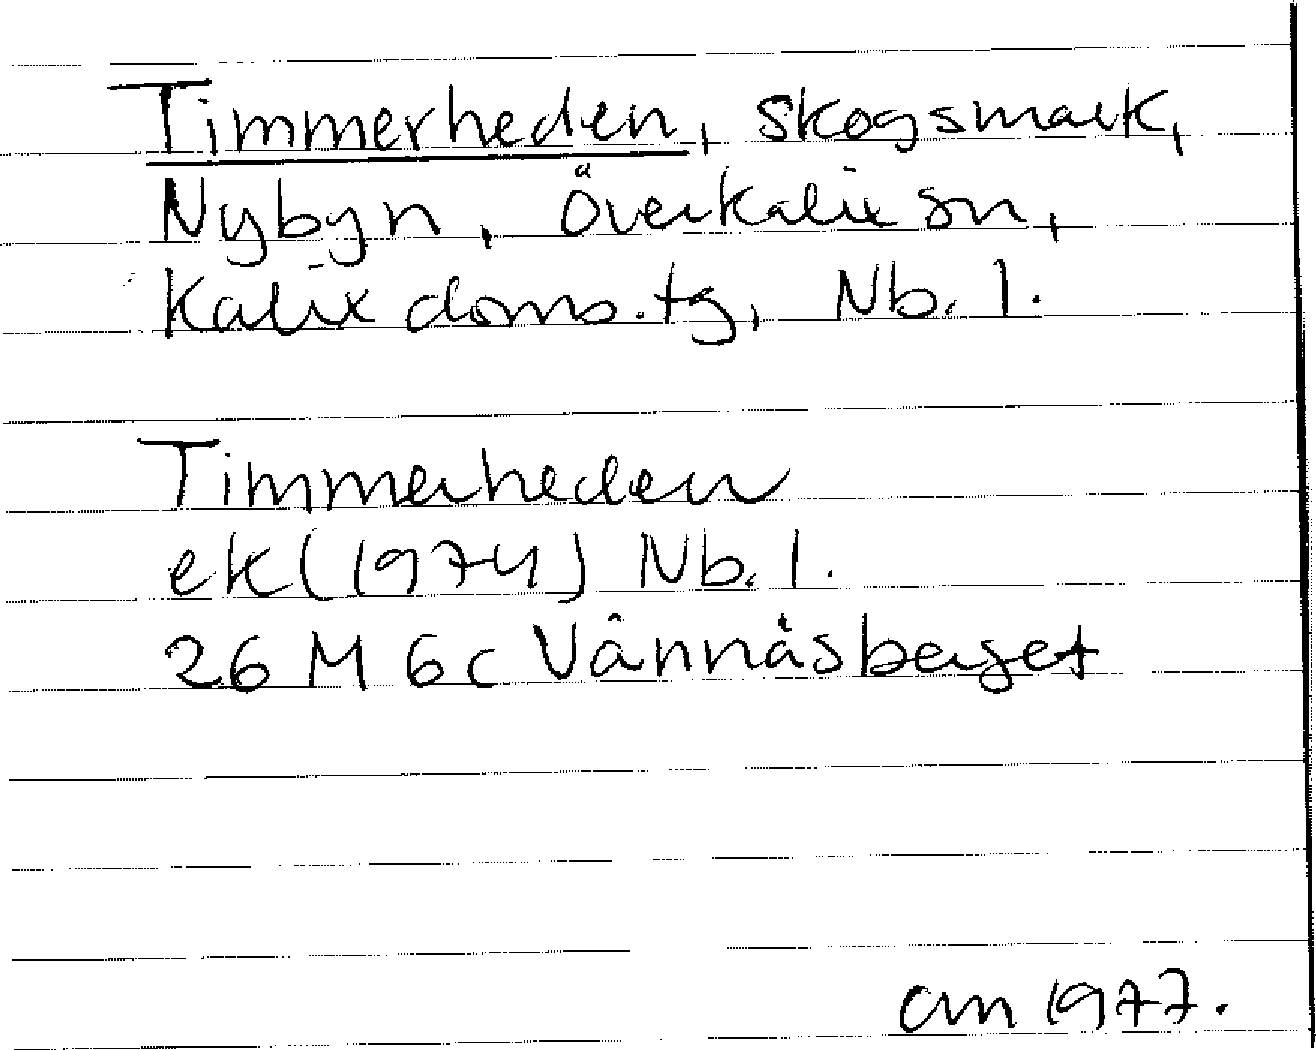 Timmerheden, skogsmark,
Nybyn, Överkalix sn,
Kalix doms.tg, Nb. l.
Timmerheden
ek (1974) Nb. l.
26 M 6c Vännäsberget
am 1977.